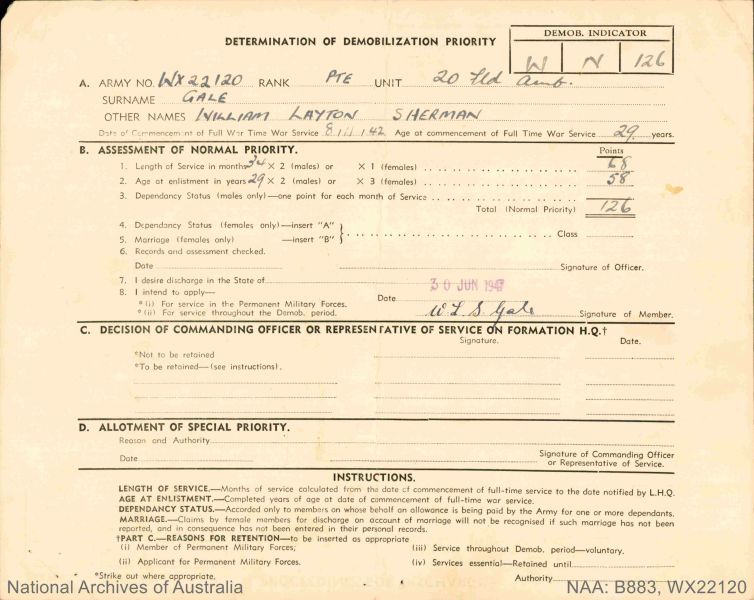 DETERMINATION OF DEMOBILIZATION PRIORITY
DEMOB. INDICATOR
W N 126
A. ARMY NO. WX22120 RANK PTE UNIT 20 Fld Amb.
SURNAME GALE
OTHER NAMES WILLIAM LAYTON SHERMAN
Date of Commencement of Full War Time War Service 8/1/42 Age at commencement of Full Time War Service 29 years.
B. ASSESSMENT OF NORMAL PRIORITY. Points
1. Length of Service in months 34 × 2 (males) or × 1 (females) 68
2. Age at enlistment in years 29 × 2 (males) or × 3 (females) 58
3. Dependancy Status (males only)—one point for each month of Service
Total (Normal Priority) 126
4. Dependancy Status (females only)—insert "A"
Class
5. Marriage (females only) —insert "B"
6. Records and assessment checked.
Date Signature of Officer.
7. I desire discharge in the State of
30 JUN 194
8. I intend to apply—
Date
*(i) For service in the Permanent Military Forces.
*(ii) For service throughout the Demob. period. W. L. S. Gale Signature of Member.
C. DECISION OF COMMANDING OFFICER OR REPRESENTATIVE OF SERVICE ON FORMATION H.Q.†
Signature. Date.
*Not to be retained
*To be retained—(see instructions).
D. ALLOTMENT OF SPECIAL PRIORITY.
Reason and Authority
Date
Signature of Commanding Officer
or Representative of Service.
INSTRUCTIONS.
LENGTH OF SERVICE.—Months of service calculated from the date of commencement of full-time service to the date notified by L.H.Q.
AGE AT ENLISTMENT.—Completed years of age at date of commencement of full-time war service.
DEPENDANCY STATUS.—Accorded only to members on whose behalf an allowance is being paid by the Army for one or more dependants.
MARRIAGE.—Claims by female members for discharge on account of marriage will not be recognised if such marriage has not been
reported, and in consequence has not been entered in their personal records.
†PART C.—REASONS FOR RETENTION—to be inserted as appropriate
(i) Member of Permanent Military Forces; (iii) Service throughout Demob. period—voluntary.
(ii) Applicant for Permanent Military Forces. (iv) Services essential—Retained until
*Strike out where appropriate. Authority
National Archives of Australia NAA: B883, WX22120